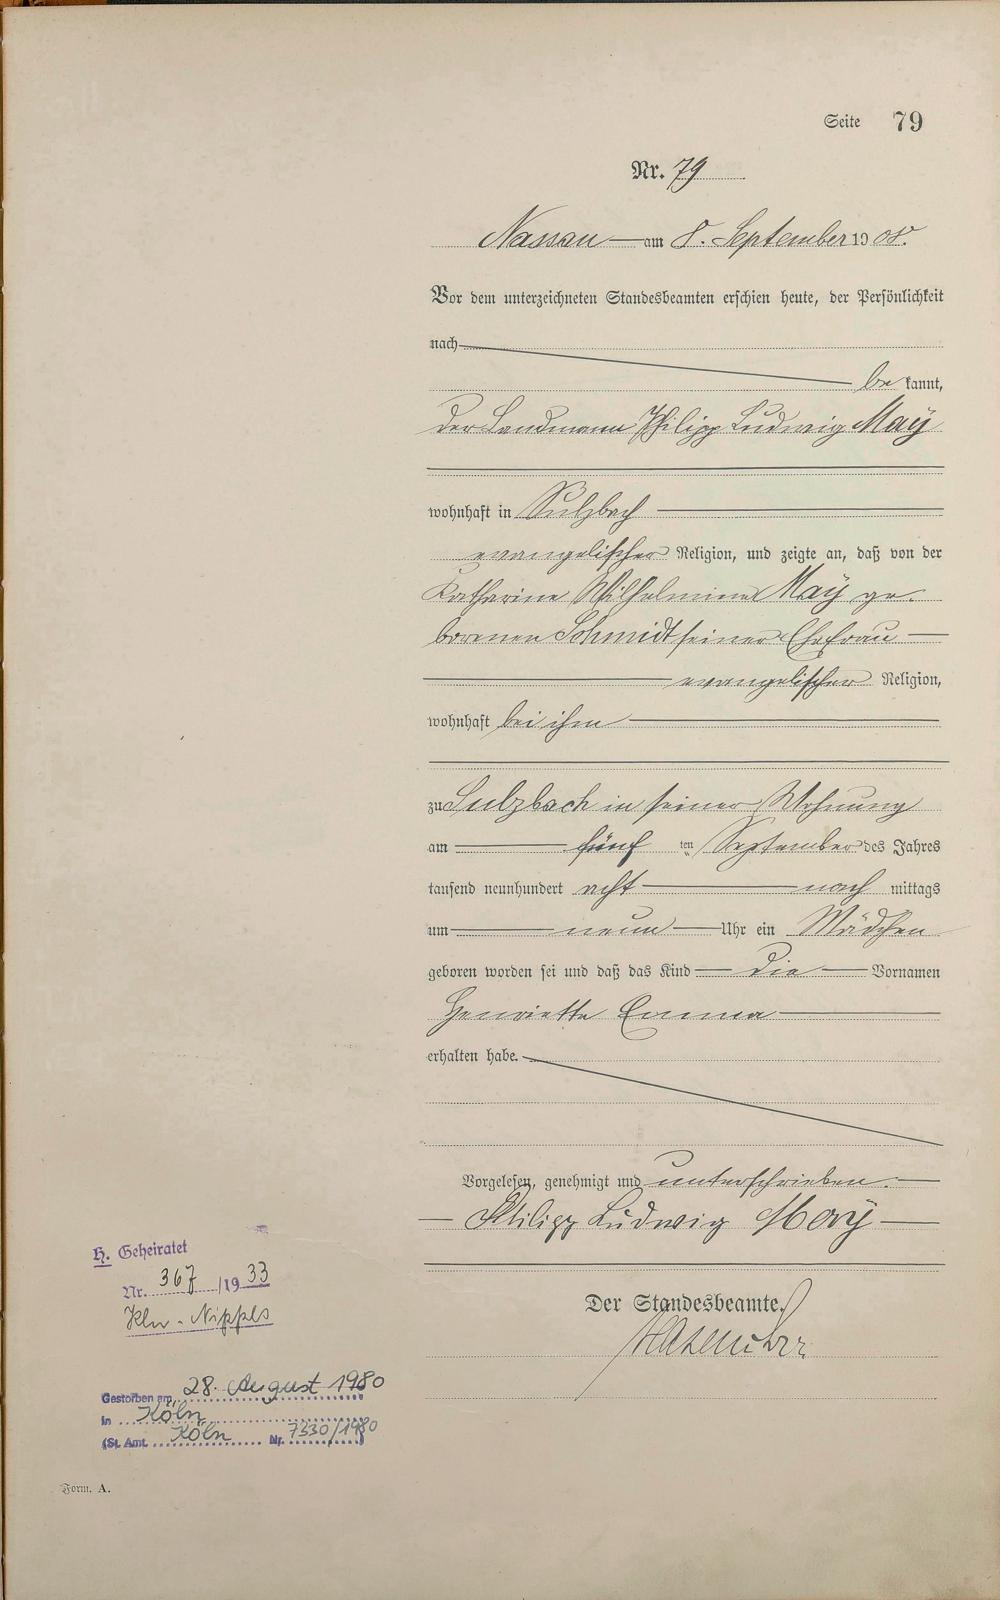 Seite 79
Nr. 79
Nassau am 8. September 1908.
Vor dem unterzeichneten Standesbeamten erschien heute, der Persönlichkeit
nach
be kannt,
der Landmann Philipp Ludwig Maÿ
wohnhaft in Sulzbach
evangelischer Religion, und zeigte an, daß von der
Katharine Wilhelmine Maÿ ge-
borenen Schmidt seiner Ehefrau
evangelischer Religion,
wohnhaft bei ihm
zu Sulzbach in seiner Wohnung
am fünf ten September des Jahres
tausend neunhundert acht nach mittags
um neun Uhr ein Mädchen
geboren worden sei und daß das Kind die Vornamen
Henriette Emma
erhalten habe.
Vorgelesen, genehmigt und unterschrieben.
Philipp Ludwig Maÿ
Der Standesbeamte.
H. Geheiratet
Nr. 367/1933
Kln-Nippes
Gestorben am 28. August 1980
in Köln
(St. Amt. Köln Nr. 7330/1980)
Form. A.